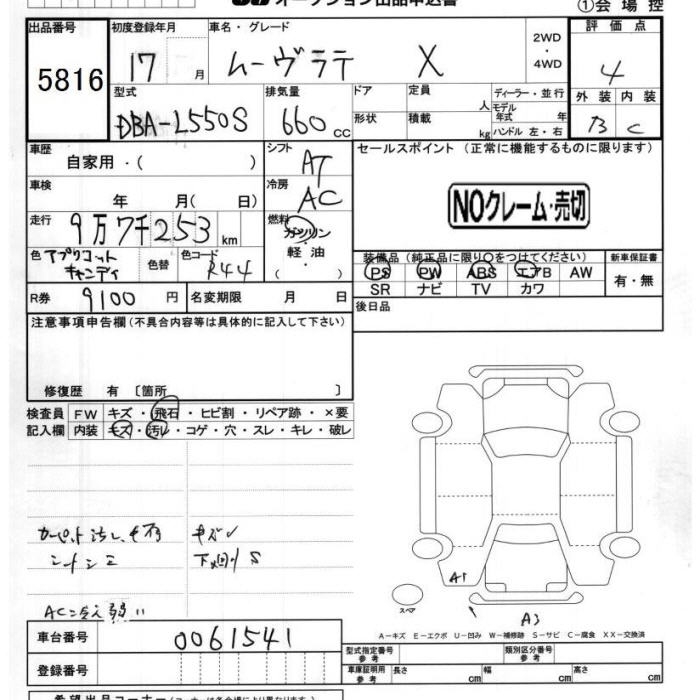 オークション出品申込書
①会場控
出品番号 初度登録年月 車名・グレード 2WD ・ 4WD 評価点
5816 17 月 ムーヴラテ X 4
型式 排気量 ドア 定員 人 ディーラー・並行 外装 内装
DBA-L550S 660 cc 形状 積載 kg モデル年式 年 ハンドル 左・右 B C
車歴 自家用・( ) シフト AT セールスポイント (正常に機能するものに限ります)
車検 年 月( 日) 冷房 AC
NOクレーム・売切
走行 9万7千253 km 燃料 ガソリン・軽油・
色 アプリコットキャンディ 色替 色コード R44
装備品 (純正品に限り○をつけてください) 新車保証書
PS PW ABS エアB AW 有・無
SR ナビ TV カワ
R券 9100 円 名変期限 月 日
後日品
注意事項申告欄(不具合内容等は具体的に記入して下さい)
修復歴 有 [箇所 ]
検査員 FW キズ・飛石・ヒビ割・リペア跡・×要
記入欄 内装 キズ・汚れ・コゲ・穴・スレ・キレ・破レ
カーペット汚れ
シートシミ
キズ
下廻り S
AC冷え弱い
A1
スペア
A3
A-キズ E-エクボ U-凹み W-補修跡 S-サビ C-腐食 XX-交換済
車台番号 0061541
型式指定番号 参考 類別区分番号 参考
登録番号
車庫証明用 参考 長さ cm 幅 cm 高さ cm
希望出品コーナー